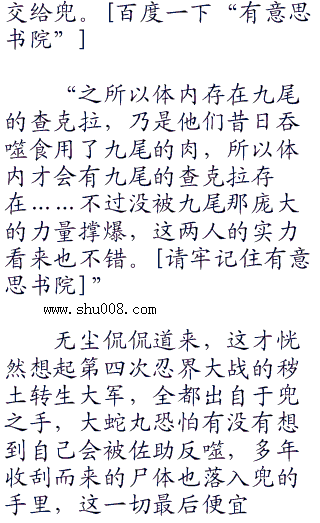 交给兜。[百度一下“有意思
书院”]
“之所以体内存在九尾
的查克拉，乃是他们昔日吞
噬食用了九尾的肉，所以体
内才会有九尾的查克拉存
在……不过没被九尾那庞大
的力量撑爆，这两人的实力
看来也不错。[请牢记住有意
思书院]”
www.shu008.com
无尘侃侃道来，这才恍
然想起第四次忍界大战的秽
土转生大军，全都出自于兜
之手，大蛇丸恐怕有没有想
到自己会被佐助反噬，多年
收刮而来的尸体也落入兜的
手里，这一切最后便宜